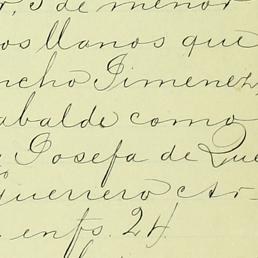 r, 3 de menor
os llanos que
ncho Jimenez,
abalde como
Josefa de Que
guerrero Ar-
enfs. 24.